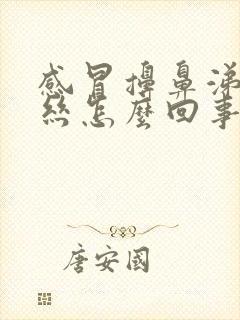 感冒擤鼻涕
絲怎麼回事
唐安國